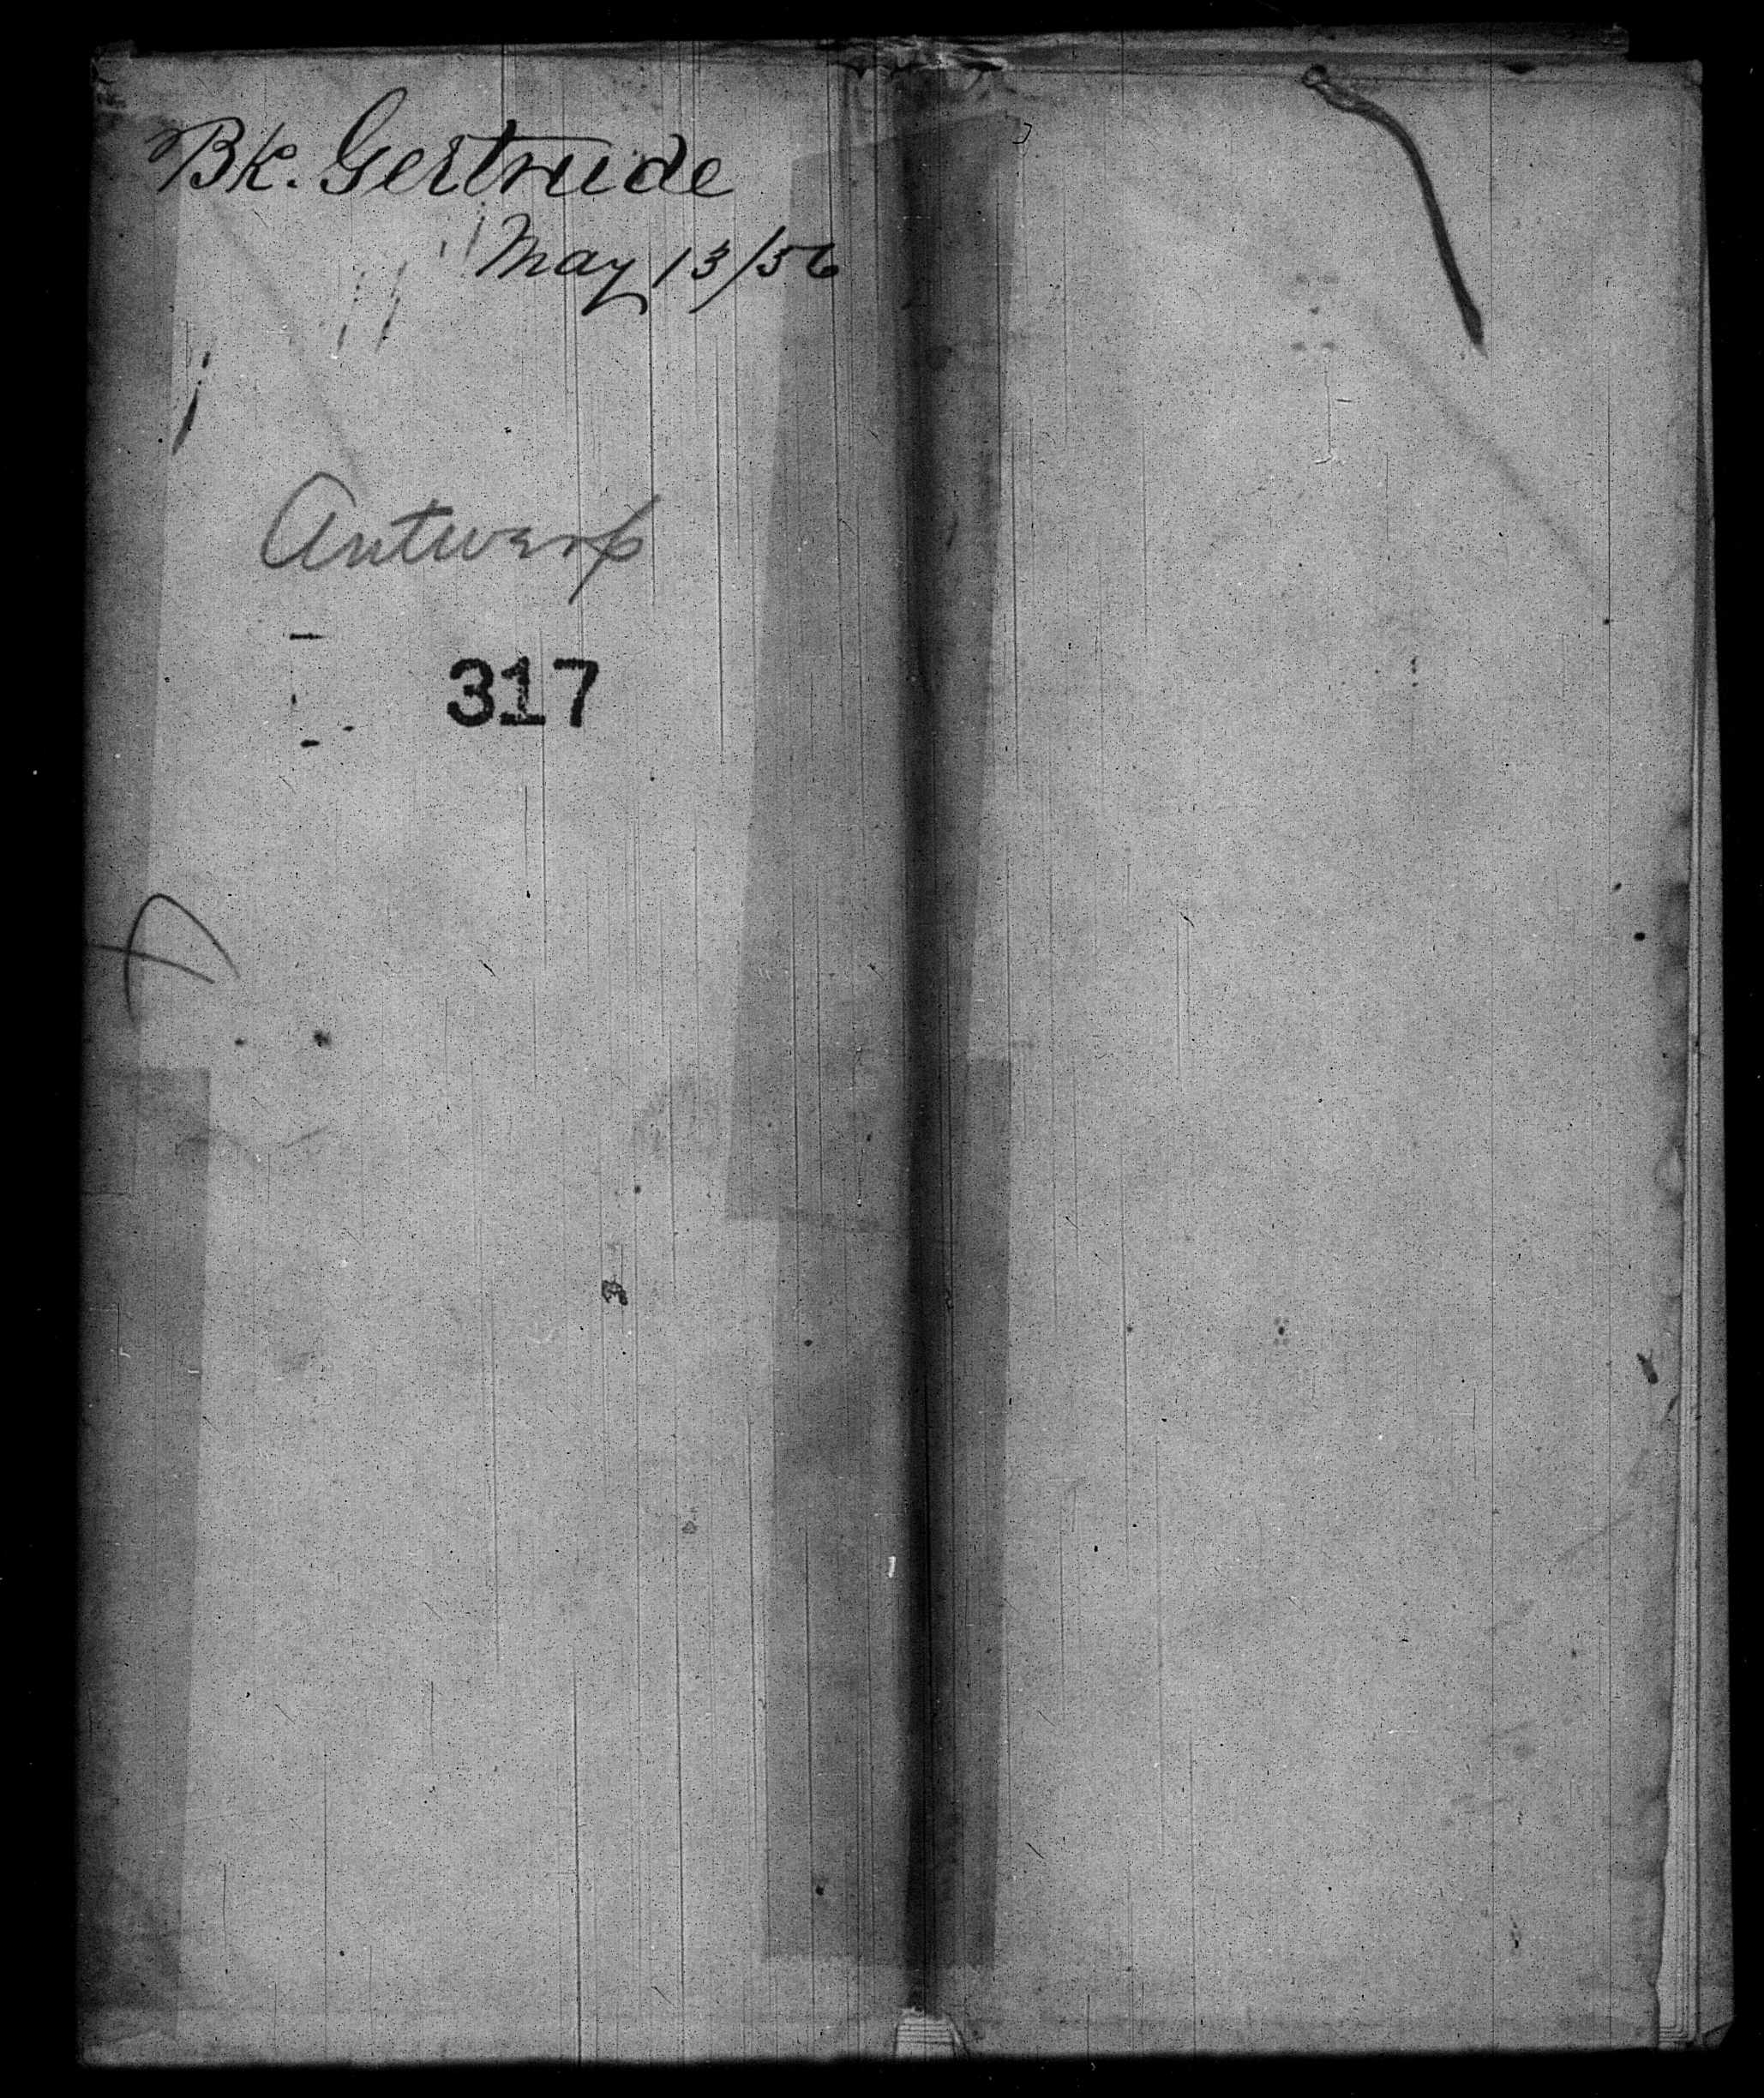 Bk. Gertrude
May 13/56
Antwerp
317